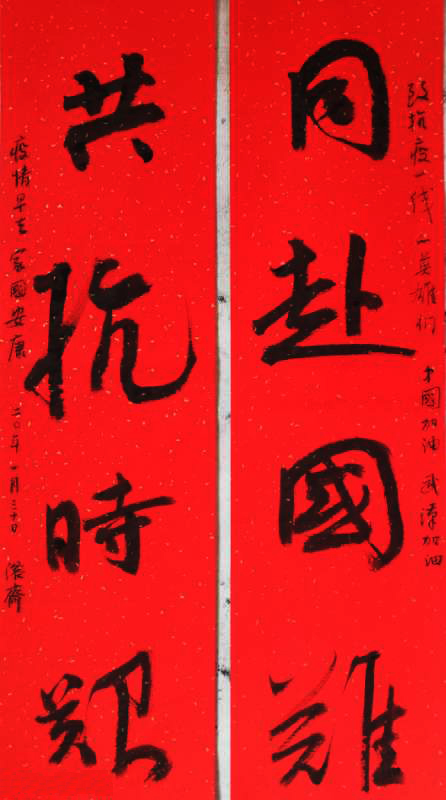 致抗疫一线的英雄们 中國加油 武漢加油
同赴國難
共抗時艱
疫情早去 家國安康 二〇年一月三十日